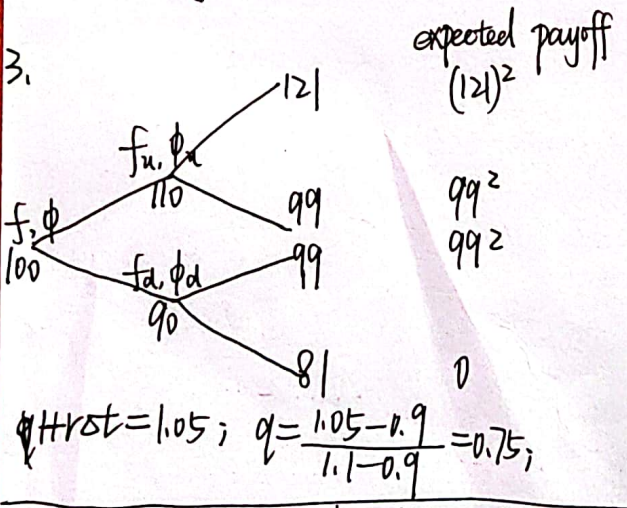 expected payoff
3.
121 (121)²
fu, ϕu
110
99 99²
f, ϕ
100
99 99²
fd, ϕd
90
81 0
1+rδt=1.05; q=\frac{1.05-0.9}{1.1-0.9}=0.75;